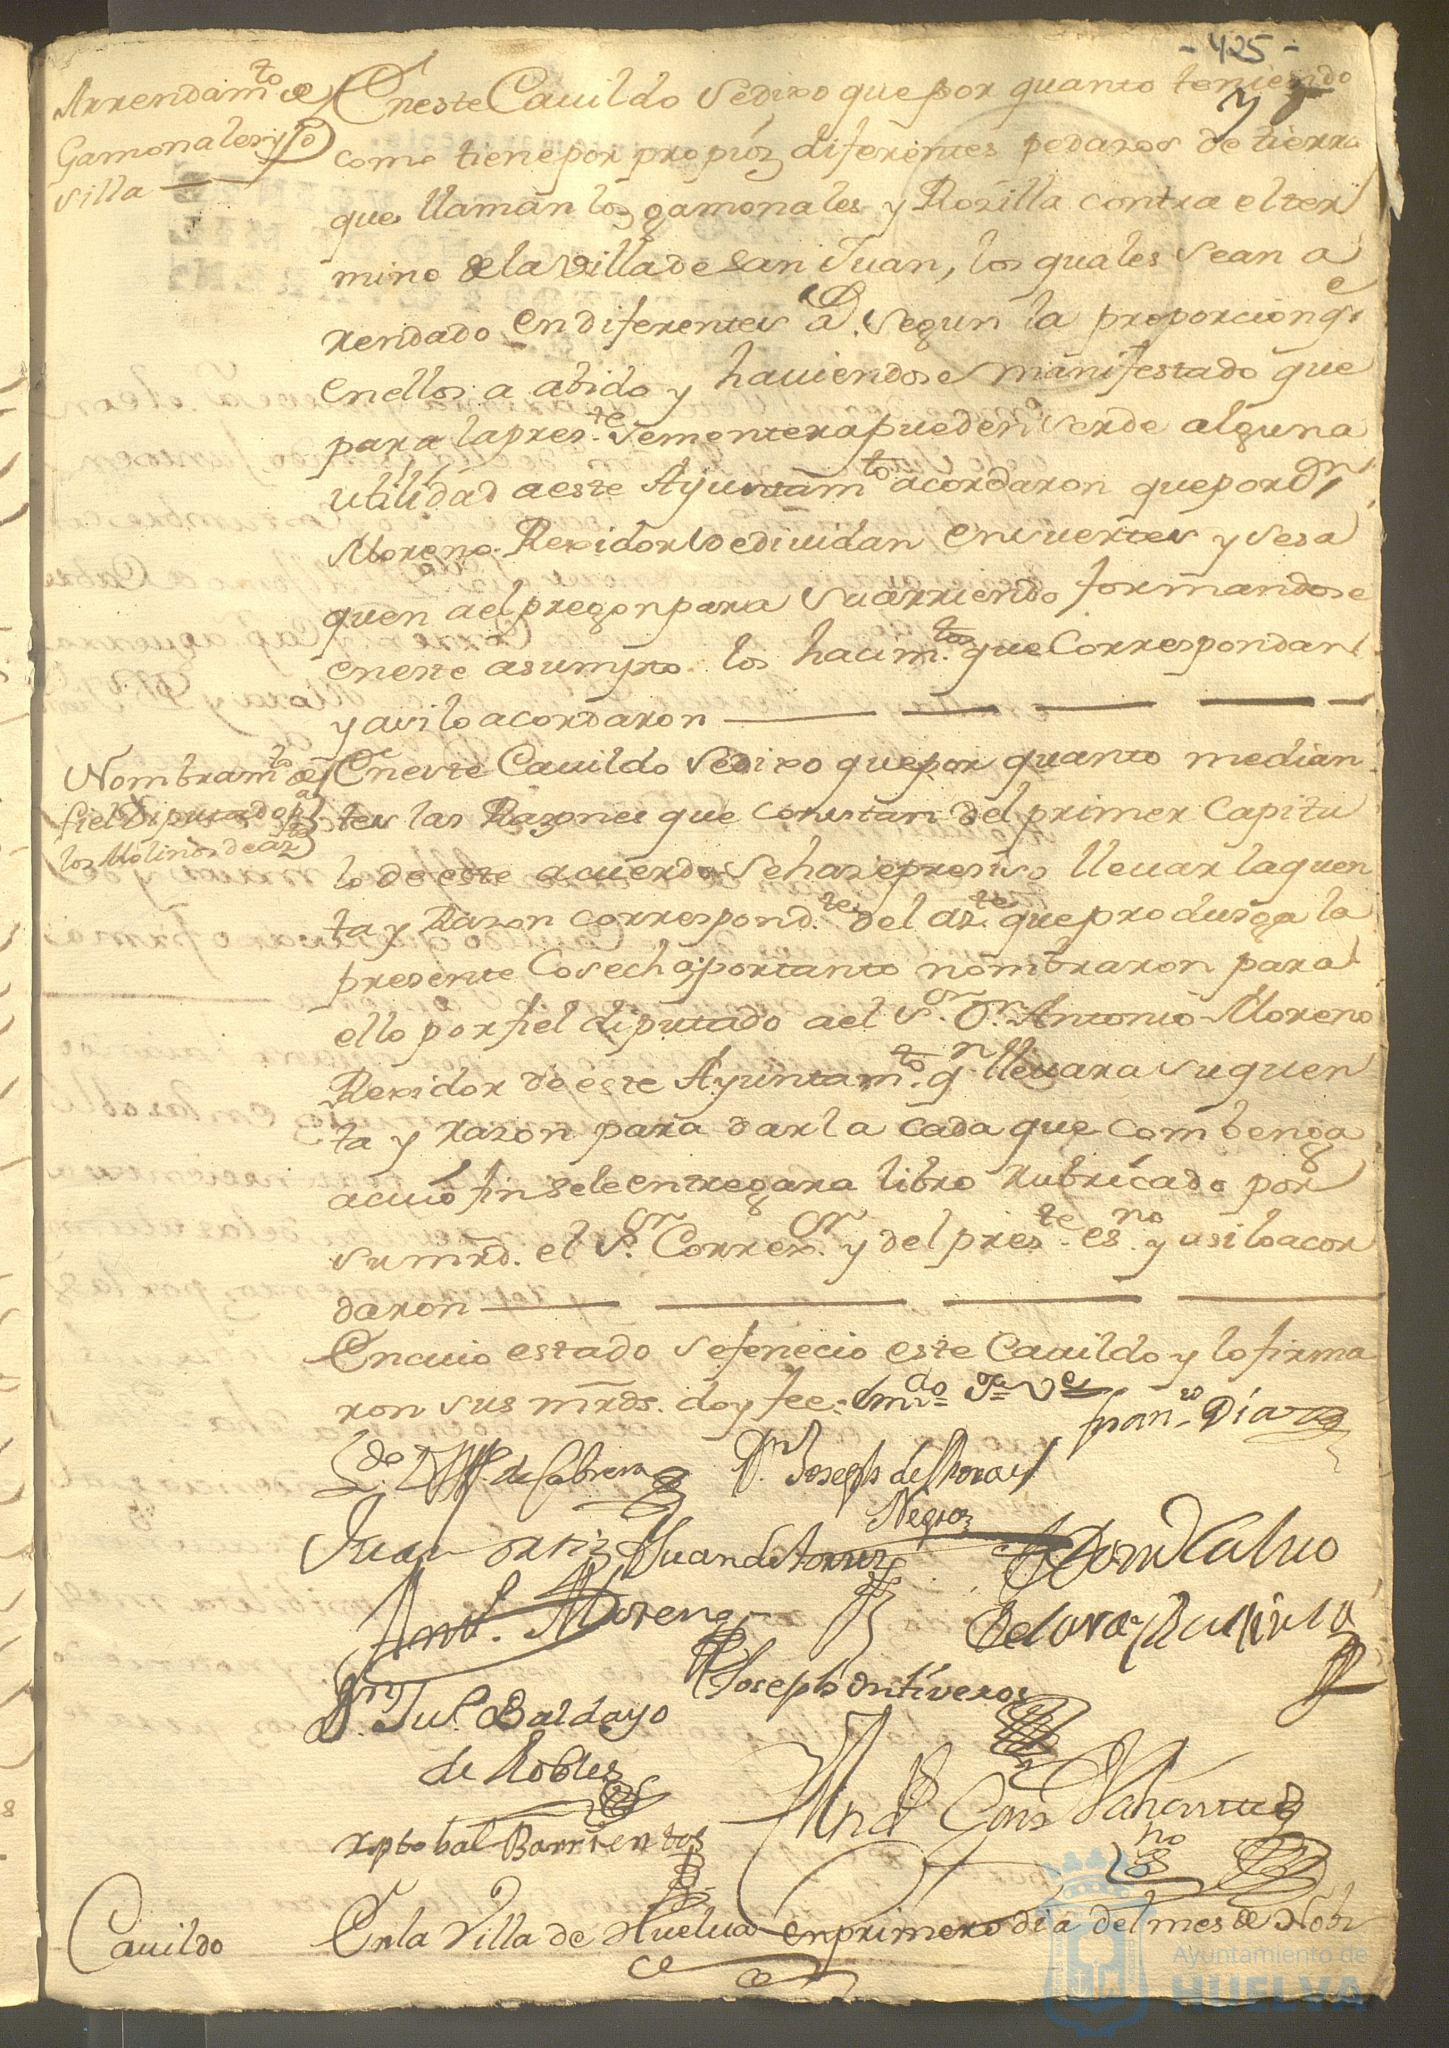 - 425 -
Arrendamto de
Gamonales y Ro
silla
En este Cauildo se dixo que por quanto teniendo
como tiene por propios diferentes pedazos de tierra
que llaman los gamonales y Rosilla contra el ter
mino de la Villa de San Juan, los quales se an a
rrendado en diferentes as. segun la proporcion qe
en ellos a abido y hauiendose manifestado que
para la preste sementera pueden ser de alguna
utilidad a este Ayuntamto acordaron que por Dn
Moreno Rexidor se diuidan en suertes y se sa
quen a el pregon para su arriendo formandose
en este asumpto los hacimtos que Correspondan
y asi lo acordaron
Nombramto de
fiel Diputado pa
los Molinos de azte
En este Cauildo se dixo que por quanto median
tes las Razones que constan del primer Capitu
lo de este acuerdo se haze preciso lleuar la quen
ta y Razon correspondte del azte que produsga la
presente Cosecha; por tanto nombraron para
ello por fiel diputado a el Sor. Dn. Antonio Moreno
Rexidor de este Ayuntamto. qn lleuara su quen
ta y razon para darla cada que combenga
a cuio fin se le entregara libro rubricado por
su mrd. el Sor. Correxor. y del preste. esno. y asi lo acor
daron
En cuio estado se fenecio este Cauildo y lo firma
ron sus mrds. doy fee.
Franco Diaz
Ldo. de Cabrera
Dn. Joseph de Mora
Negro
Juan Ortiz
Juan de Torres
Dom Calvo
Anto. Moreno
de lara
Joseph Ontiveros
Dn. Jul. Baldayo
de Robles
Xptobal Barrientos
Cauildo
En la Villa de Huelua en primero dia del mes de Nobi
Ayuntamiento de
HUELVA